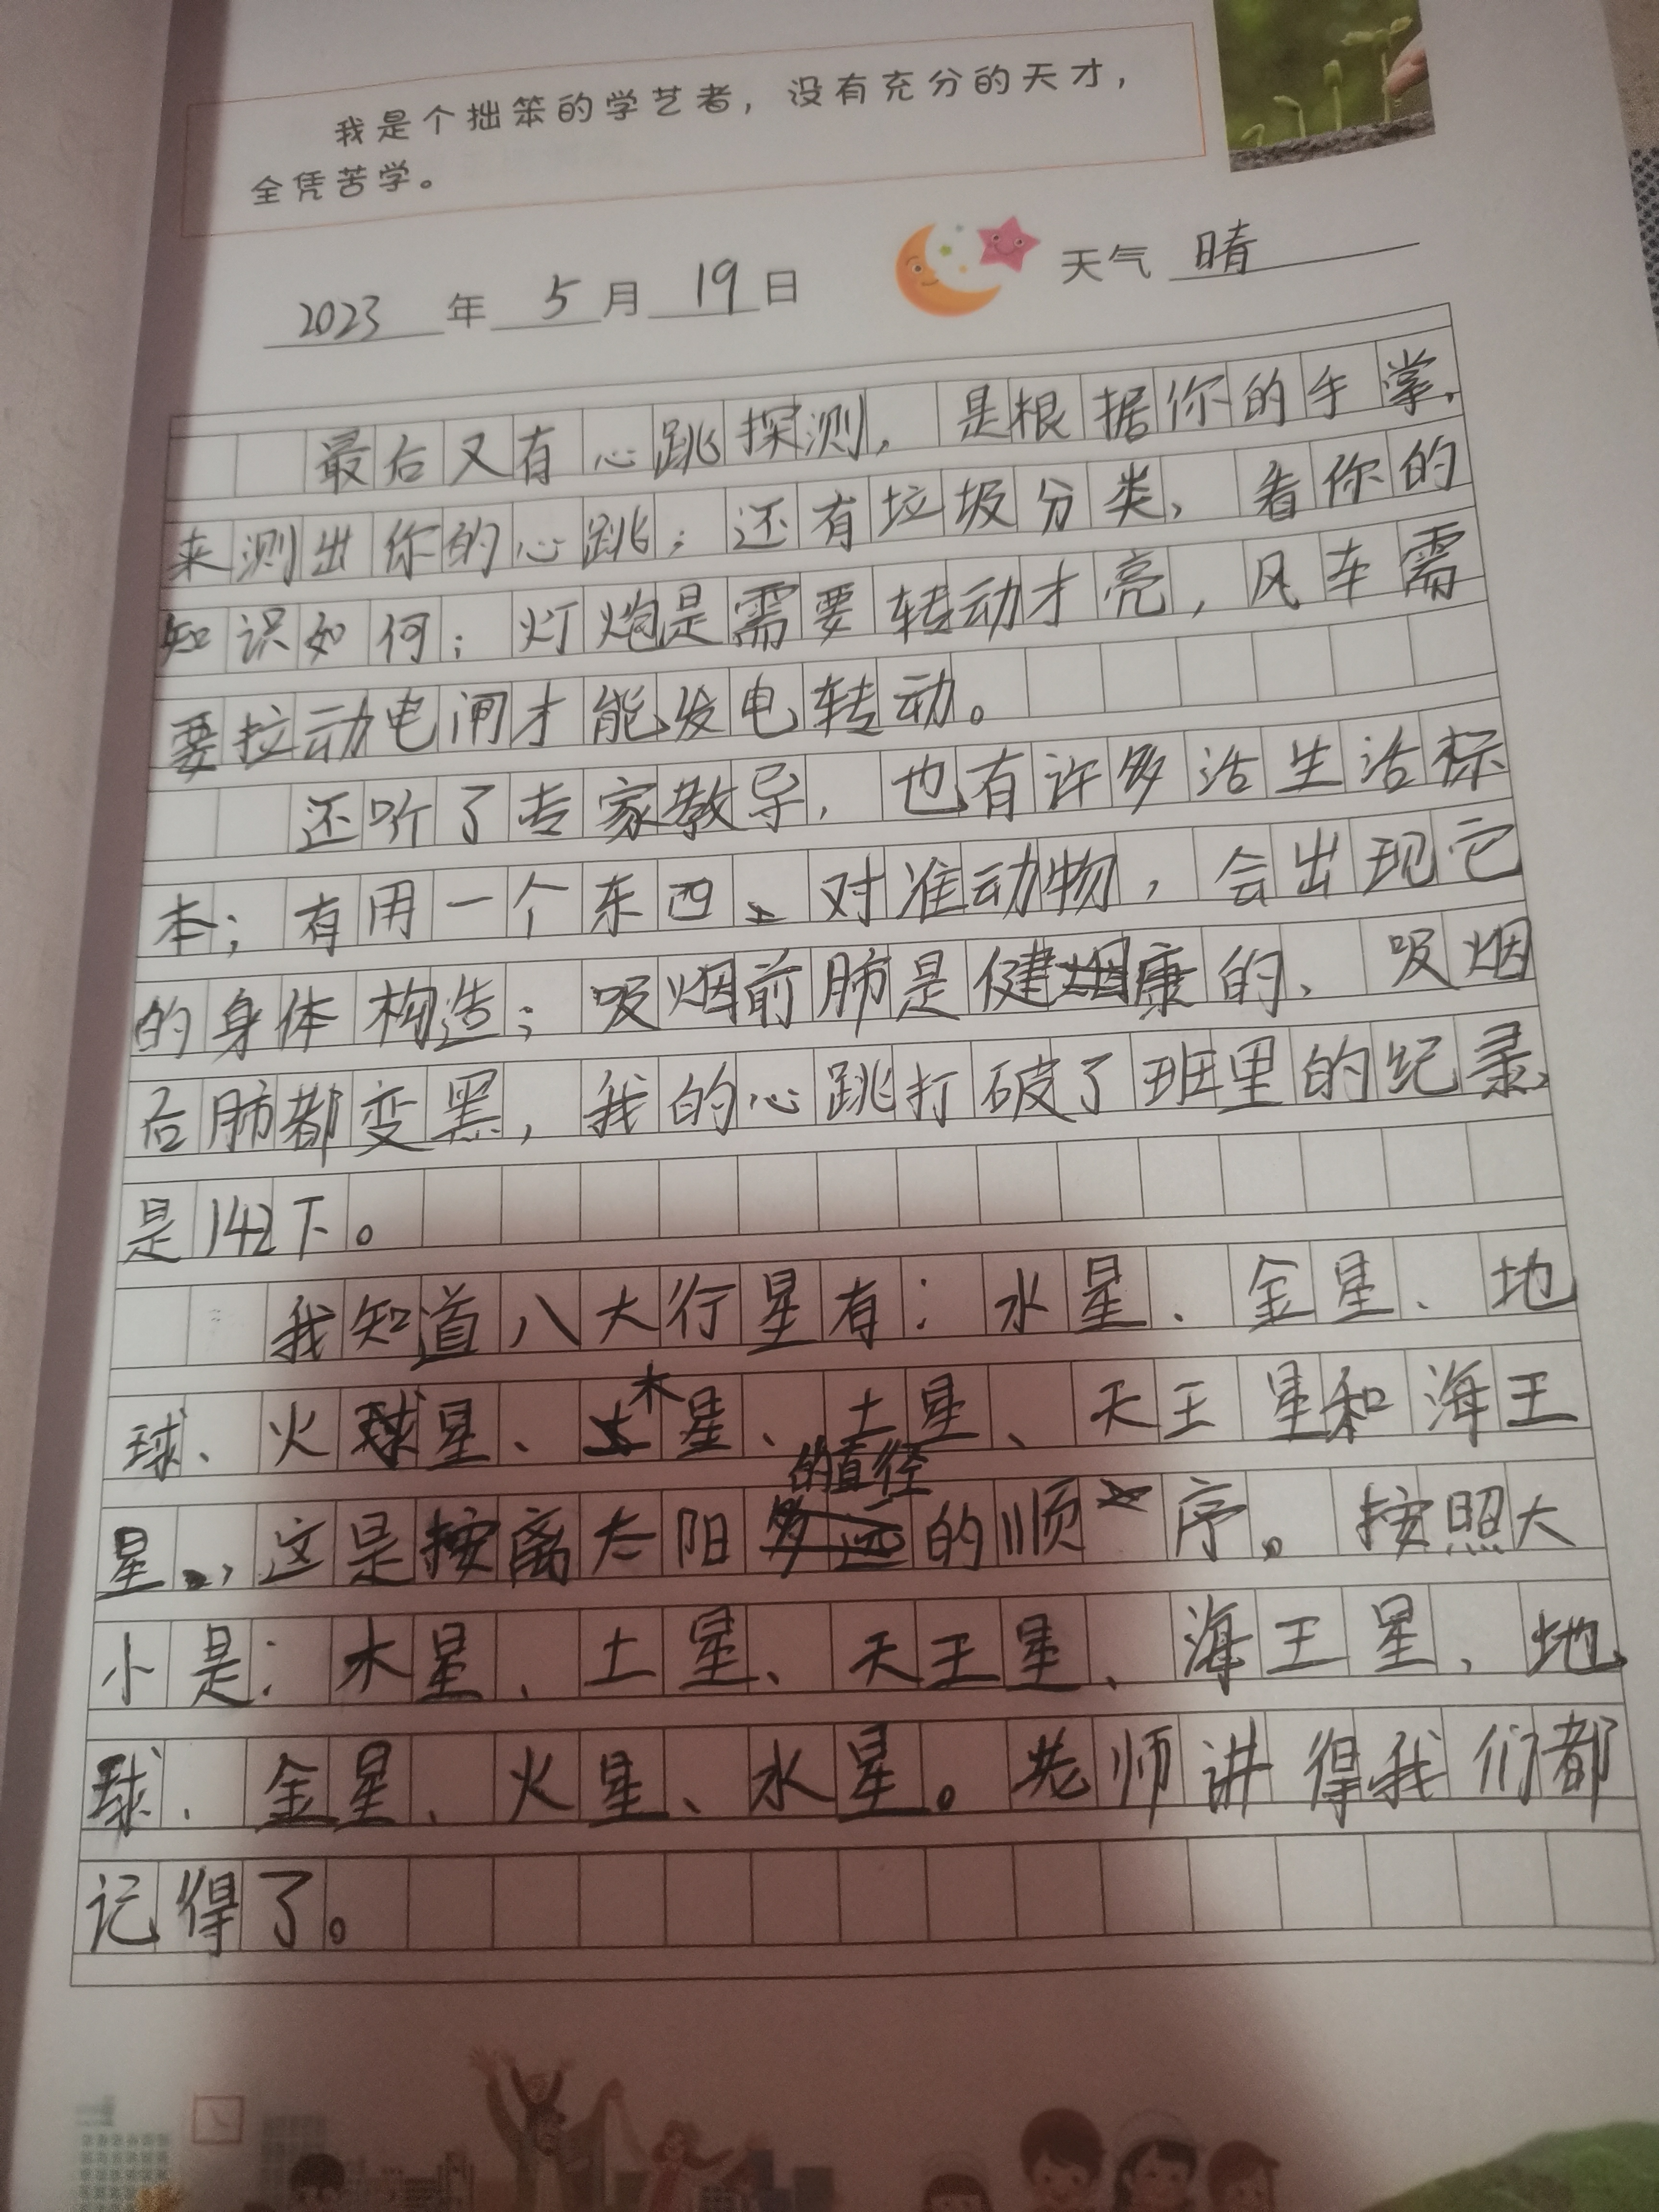 我是个拙笨的学艺者，没有充分的天才，
全凭苦学。
2023年5月19日 天气 晴
最后又有心跳探测，是根据你的手掌，
来测出你的心跳；还有垃圾分类，看你的
知识如何；灯炮是需要转动才亮，风车需
要拉动电闸才能发电转动。
还听了专家教导，也有许多活生活标
本；有用一个东西、对准动物，会出现它
的身体构造；吸烟前肺是健康的、吸烟
后肺都变黑，我的心跳打破了班里的纪录，
是142下。
我知道八大行星有：水星、金星、地
球、火星、木星、土星、天王星和海王
星，这是按离太阳的直径的顺序。按照大
小是：木星、土星、天王星、海王星、地
球、金星、火星、水星。老师讲得我们都
记得了。